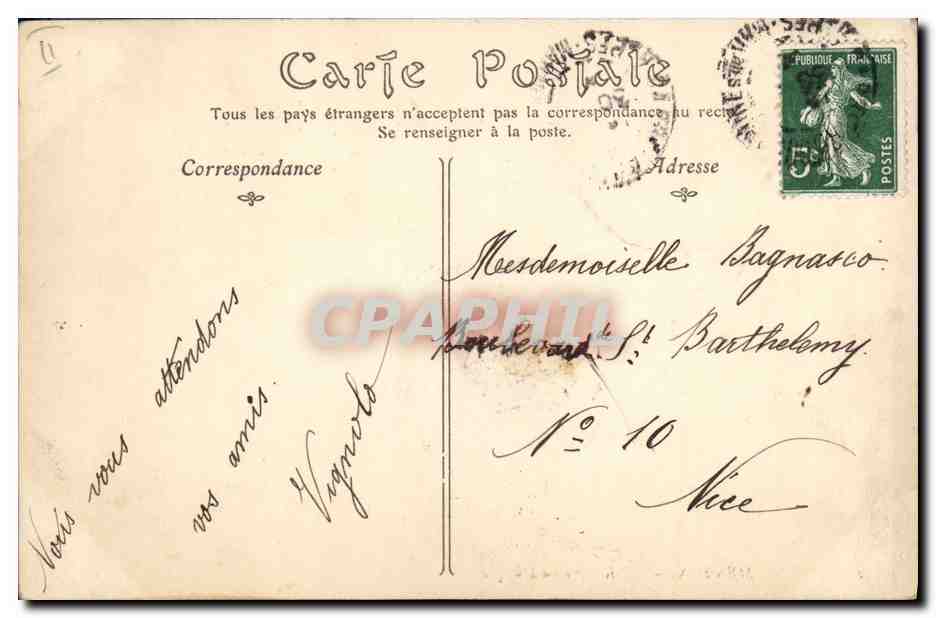 11
Carte Postale
Tous les pays étrangers n'acceptent pas la correspondance au
Se renseigner à la poste.
Correspondance
Adresse
RÉPUBLIQUE FRANÇAISE
5c
POSTES
Nous vous attendons
vos amis.
Vignolo
Mesdemoiselle Bagnasco
Boulevard de St Barthelemy
No 10
Nice
CPAPHIL